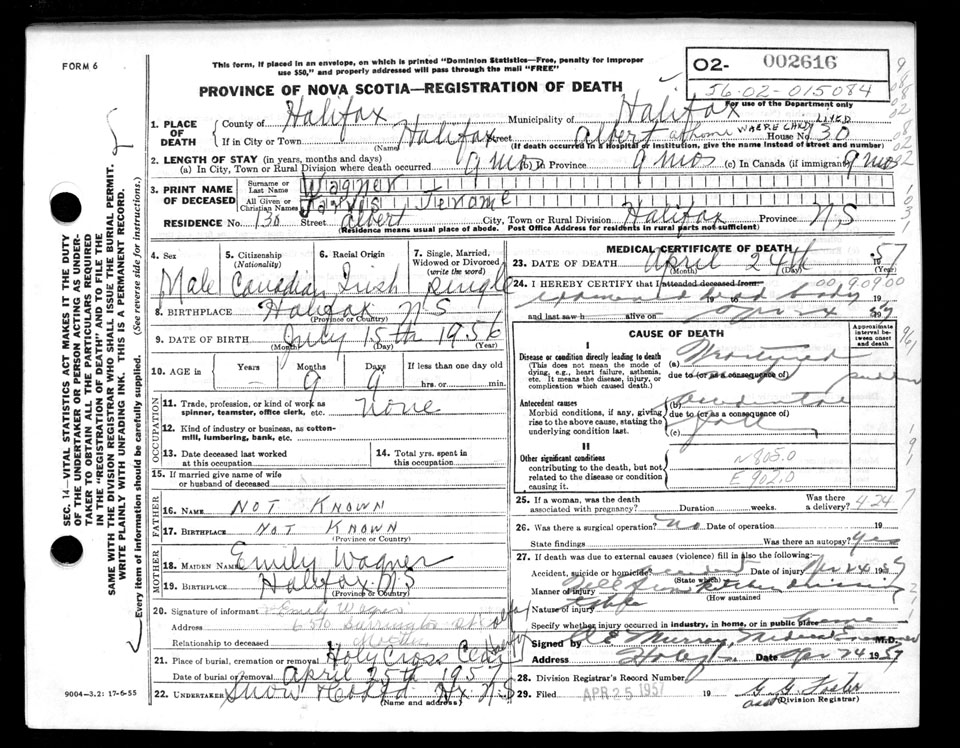 FORM 6
This form, if placed in an envelope, on which is printed "Dominion Statistics—Free, penalty for improper
use $50," and properly addressed will pass through the mail "FREE"
02- 002616
56-02-015084
PROVINCE OF NOVA SCOTIA—REGISTRATION OF DEATH
For use of the Department only
1. PLACE OF DEATH
County of Halifax Municipality of Halifax
If in City or Town Halifax Street Albert at home WHERE CHILD LIVED House No. 30
(Name) (If death occurred in a Hospital or Institution, give the name instead of street and number)
2. LENGTH OF STAY (in years, months and days)
(a) In City, Town or Rural Division where death occurred 9 mos (b) In Province 9 mos (c) In Canada (if immigrant) 9 mos
3. PRINT NAME OF DECEASED
Surname or Last Name Wagner
All Given or Christian Names Jarvis Jerome
RESIDENCE No. 130 Street Albert City, Town or Rural Division Halifax Province N.S
(Residence means usual place of abode. Post Office Address for residents in rural parts not sufficient)
4. Sex Male
5. Citizenship (Nationality) Canadian
6. Racial Origin Irish
7. Single, Married, Widowed or Divorced (write the word) Single
8. BIRTHPLACE Halifax N S
(Province or Country)
9. DATE OF BIRTH July 15th 1956
(Month) (Day) (Year)
10. AGE in Years — Months 9 Days 9 If less than one day old
hrs. or min.
OCCUPATION
11. Trade, profession, or kind of work as
spinner, teamster, office clerk, etc. none
12. Kind of industry or business, as cotton-
mill, lumbering, bank, etc.
13. Date deceased last worked
at this occupation
14. Total yrs. spent in
this occupation
15. If married give name of wife
or husband of deceased
FATHER
16. NAME NOT KNOWN
17. BIRTHPLACE NOT KNOWN
(Province or Country)
MOTHER
18. MAIDEN NAME Emily Wagner
19. BIRTHPLACE Halifax N.S
(Province or Country)
20. Signature of informant Emily Wagner
Address 650 Barrington St
Relationship to deceased Mother
21. Place of burial, cremation or removal Holy Cross Cem
Date of burial or removal April 25th 1957
22. UNDERTAKER Snow & Co Ltd Hx N.S
(Name and address)
9004-3,2: 17-6-55
MEDICAL CERTIFICATE OF DEATH
23. DATE OF DEATH April 24th 1957
(Month) (Day) (Year)
24. I HEREBY CERTIFY that I attended deceased from: 00 9.09.00
examined dead body
19 to 19
and last saw h alive on Apr 24 1957
CAUSE OF DEATH
Approximate interval between onset and death
I
Disease or condition directly leading to death
(This does not mean the mode of
dying, e.g., heart failure, asthma,
etc. It means the disease, injury, or
complication which caused death.)
(a)
due to (or as a consequence of)
Antecedent causes
Morbid conditions, if any, giving
rise to the above cause, stating the
underlying condition last.
(b) accidental
due to (or as a consequence of)
(c) fall
II
Other significant conditions
contributing to the death, but not
related to the disease or condition
causing it.
N 805.0
E 902.0
25. If a woman, was the death
associated with pregnancy? Duration weeks. Was there
a delivery? 4247
26. Was there a surgical operation? no Date of operation 19
State findings Was there an autopsy? yes
27. If death was due to external causes (violence) fill in also the following:
Accident, suicide or homicide? accident Date of injury Apr 24 1957
(State which)
Manner of injury Fell from kitchen
(How sustained
Nature of injury
Specify whether injury occurred in industry, in home, or in public place home
Signed by Murray, Medical Examiner M.D.
Address Date Apr 24 1957
28. Division Registrar's Record Number
29. Filed APR 25 1957 19 Foster
(Division Registrar)
SEC. 14—VITAL STATISTICS ACT MAKES IT THE DUTY
OF THE UNDERTAKER OR PERSON ACTING AS UNDER-
TAKER TO OBTAIN ALL THE PARTICULARS REQUIRED
IN THE "REGISTRATION OF DEATH" AND TO FILE THE
SAME WITH THE DIVISION REGISTRAR WHO SHALL ISSUE THE BURIAL PERMIT.
WRITE PLAINLY WITH UNFADING INK. THIS IS A PERMANENT RECORD.
Every item of information should be carefully supplied. (See reverse side for instructions.)